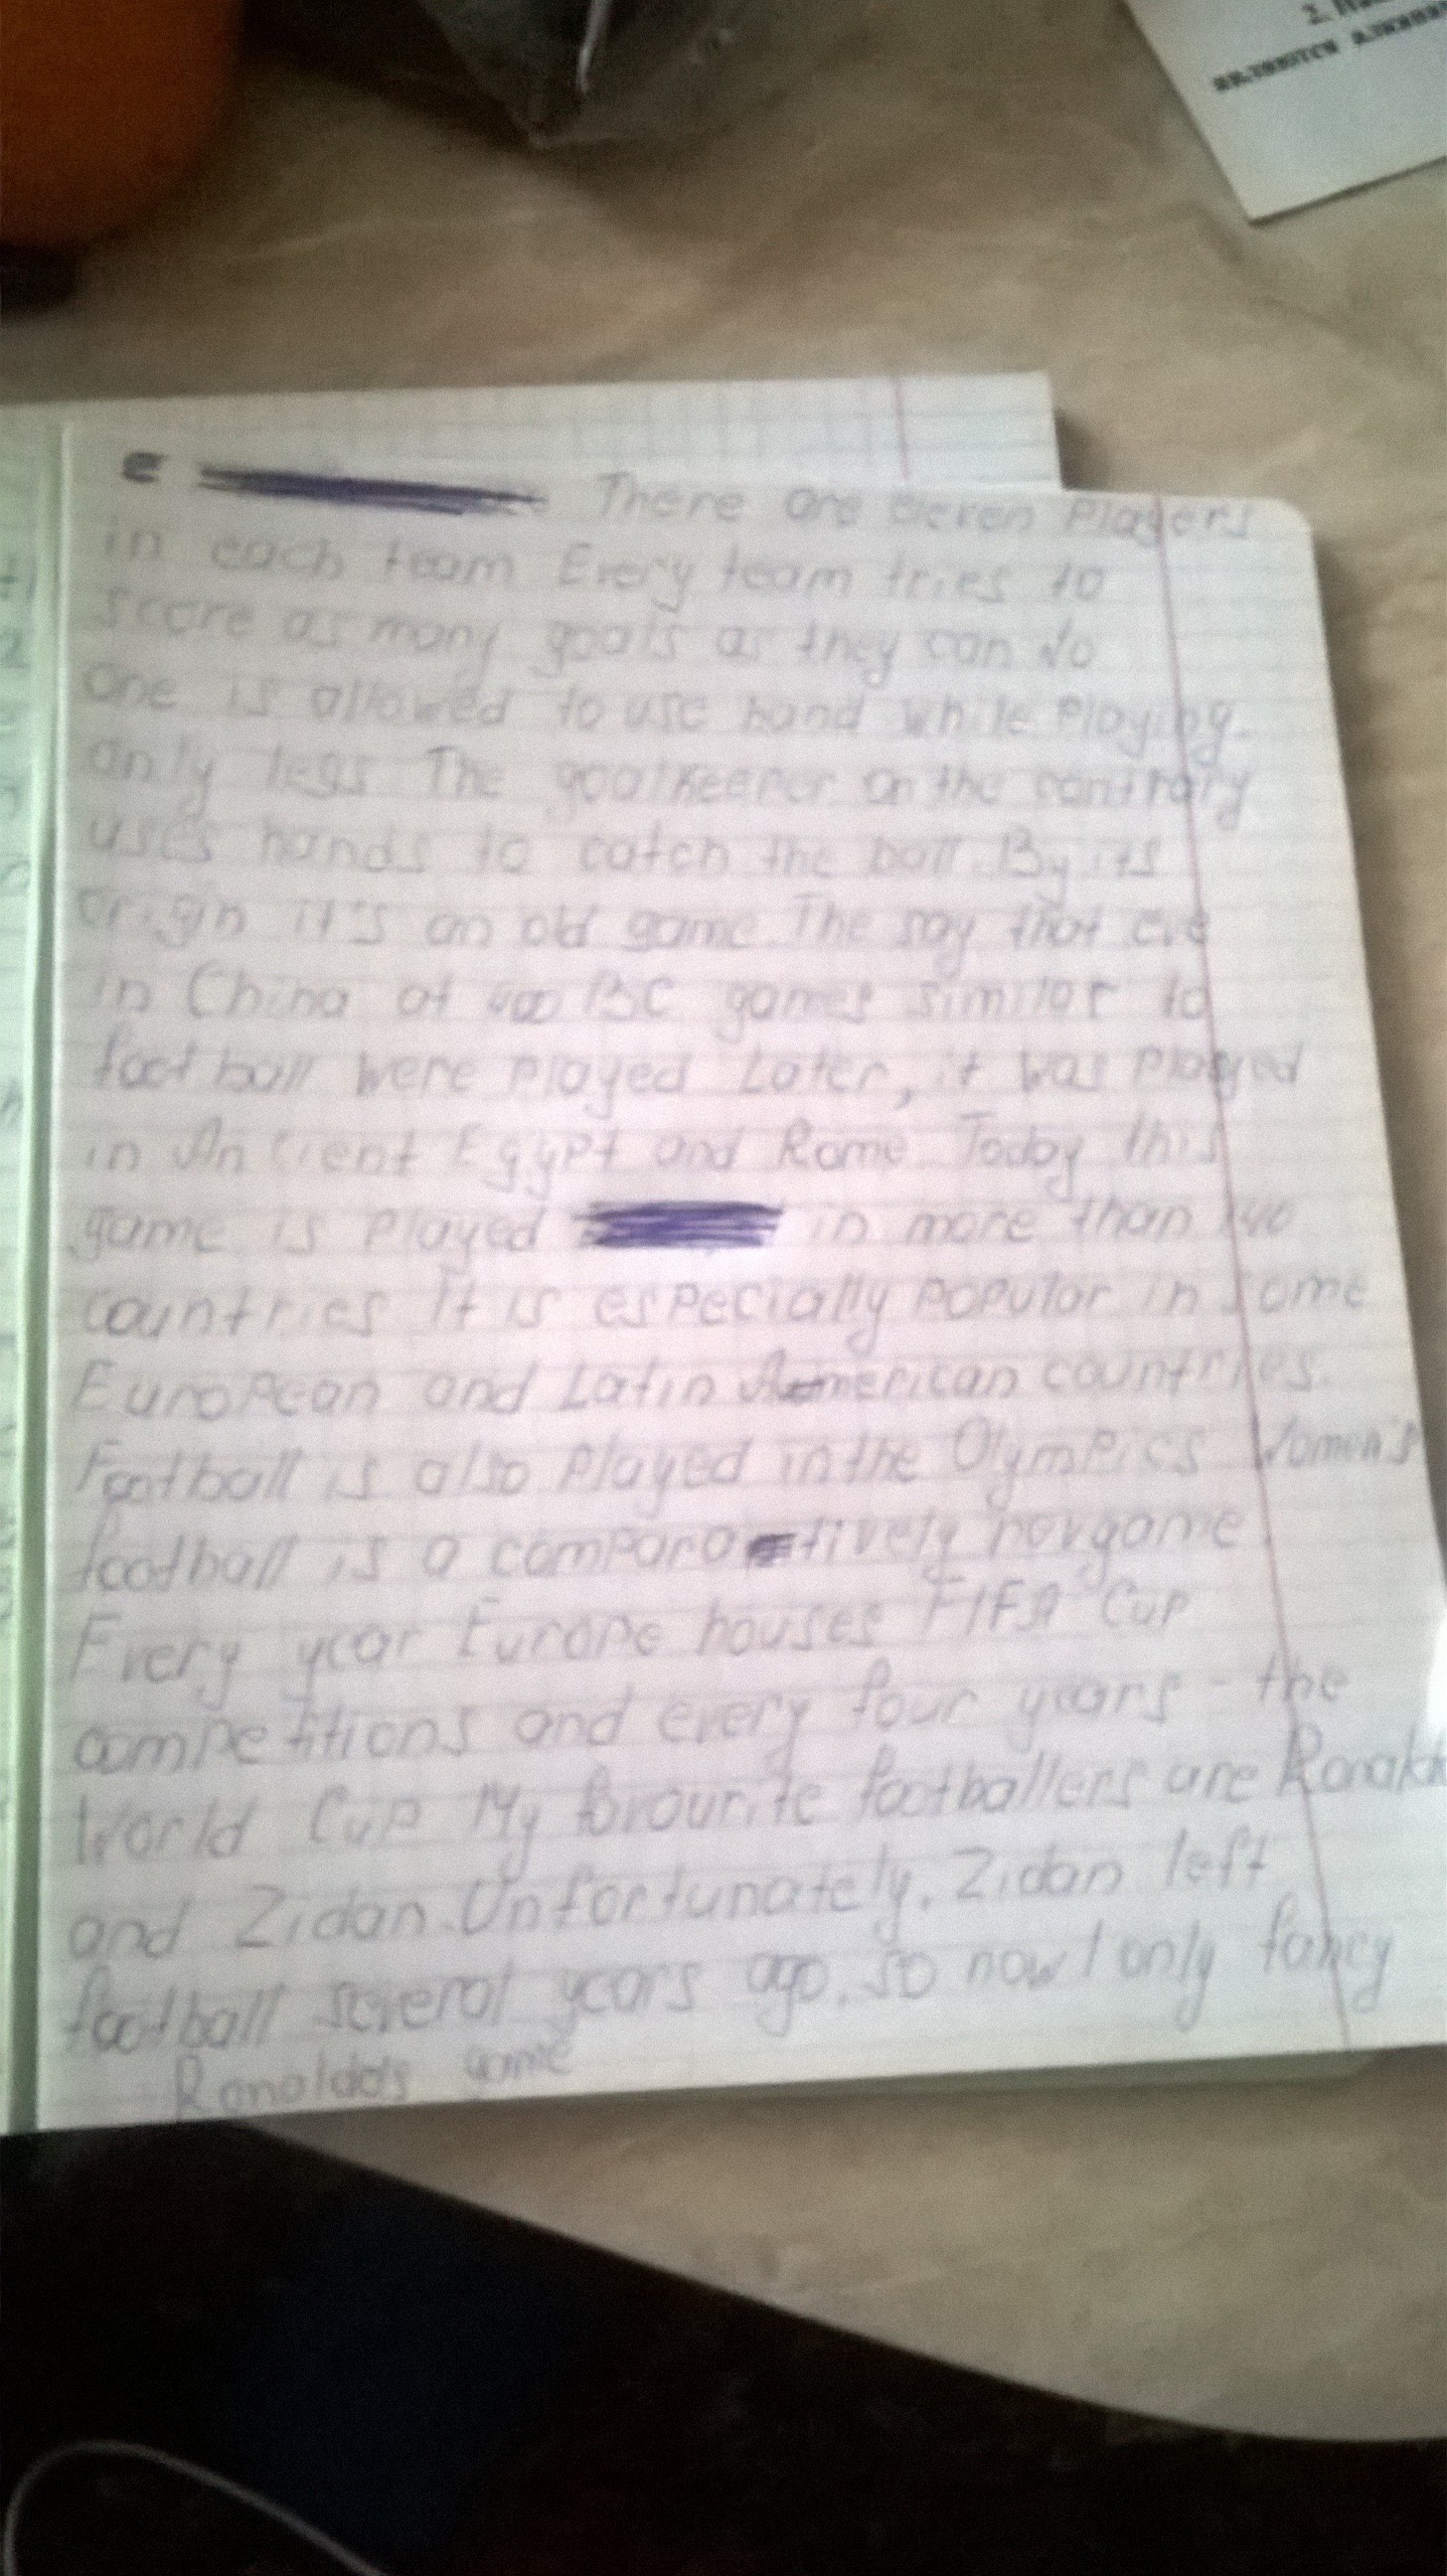 2.
являются
There are eleven Players
in each team Every team tries to
score as many goals as they can No
one is allowed to use hand while Playing.
only legs The goalkeeper on the contrary
uses hands to catch the ball. By its
origin it's an old game. The say that eve
in China at 400 BC games similar to
football were played Later, it was played
in Ancient Egypt and Rome. Today this
game is played in more than 140
countries It is especially popular in some
European and Latin American countries.
Football is also played in the Olympics Women's
football is a comparatively novgame
Every year Europe houses FIFA Cup
competitions and every four years - the
World Cup My favourite footballers are Ronald
and Zidan. Unfortunately, Zidan left
football several years ago, so now I only fancy
Ronaldo's game